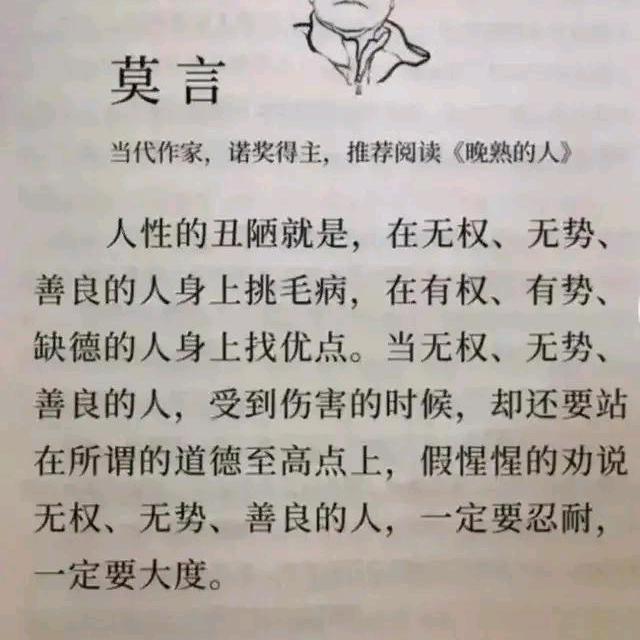 莫言
当代作家，诺奖得主，推荐阅读《晚熟的人》
人性的丑陋就是，在无权、无势、
善良的人身上挑毛病，在有权、有势、
缺德的人身上找优点。当无权、无势、
善良的人，受到伤害的时候，却还要站
在所谓的道德至高点上，假惺惺的劝说
无权、无势、善良的人，一定要忍耐，
一定要大度。